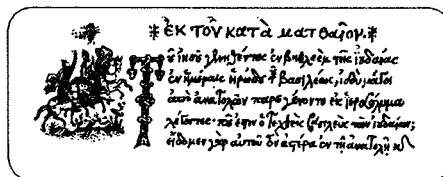 ※ ἘΚ ΤΟῦ ΚΑΤᾺ ΜΑΤΘΑῖΟΝ. ※
Τοῦ ἰησοῦ γεννηθέντος ἐν βηθλεὲμ τῆς ἰουδαίας
ἐν ἡμέραις ἡρώδου τοῦ βασιλέως, ἰδοὺ μάγοι
ἀπὸ ἀνατολῶν παρεγένοντο εἰς ἱεροσόλυμα
λέγοντες· ποῦ ἐστιν ὁ τεχθεὶς βασιλεὺς τῶν ἰουδαίων;
εἴδομεν γὰρ αὐτοῦ τὸν ἀστέρα ἐν τῇ ἀνατολῇ κ